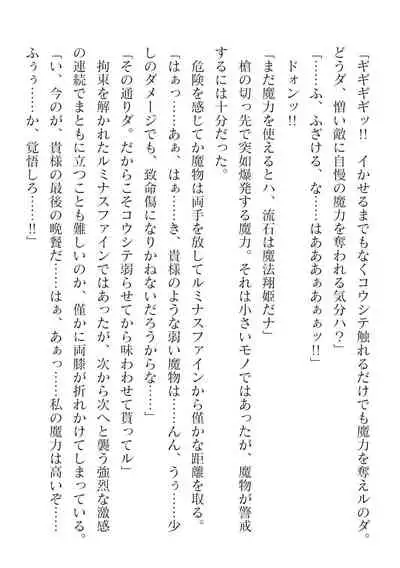 「ギギギギッ!!　イかせるまでもなくコウシテ触れるだけでも魔力を奪えルのダ。
どうダ、憎い敵に自慢の魔力を奪われる気分ハ？」
「……ふ、ふざける、な……はあああぁあぁぁッ!!」
ドォンッ!!
「まだ魔力を使えるとハ、流石は魔法翔姫だナ」
槍の切っ先で突如爆発する魔力。それは小さいモノではあったが、魔物が警戒
するには十分だった。
危険を感じてか魔物は両手を放してルミナスファインから僅かな距離を取る。
「はぁっ……あぁ、はぁ……き、貴様のような弱い魔物は……んん、うぅ……少
しのダメージでも、致命傷になりかねないだろうからな……」
「その通りダ。だからこそコウシテ弱らせてから味わわせて貰ってル」
拘束を解かれたルミナスファインではあったが、次から次へと襲う強烈な激感
の連続でまともに立つことも難しいのか、僅かに両膝が折れかけてしまっている。
「い、今のが、貴様の最後の晩餐だ……はぁ、あぁっ……私の魔力は高いぞ……
ふぅぅ……か、覚悟しろ……!!」